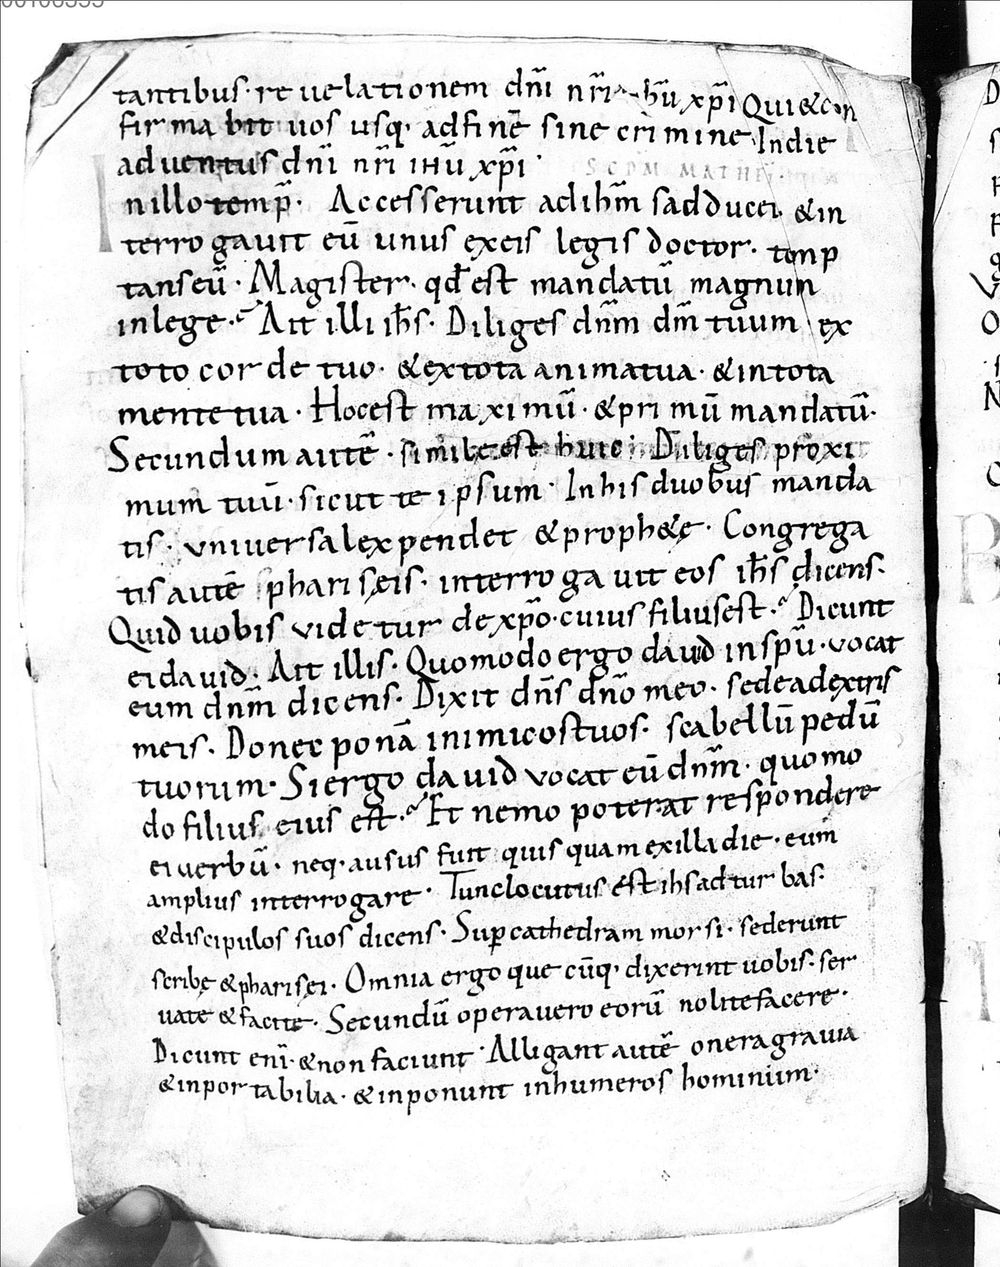 tantibus· reuelationem dn̄i nr̄i ihū xp̄i Qui&con
firmabit uos usq· adfinē sine crimine Indie
aduentus dn̄i nr̄i ihū xp̄i·
SCDM MATHEŪ·
Inillotemp̄· Accesserunt adihm̄ sadducei &in
terrogauit eū unus exeis legis doctor· temp
tanseū· Magister· qd̄ est mandatū magnum
inlege· Ait illi ihs̄· Diliges dn̄m dm̄ tuum ex
toto corde tuo· &extota animatua· &intota
mentetua· Hocest maximū· &primū mandatū·
Secundum autē· simile est huic· Diliges proxi
mum tuū· sicut te ipsum· Inhis duobus manda
tis· uniuersalex pendet &proph&ę· Congrega
tis autē phariseis· interrogauit eos ihs̄ dicens·
Quid uobis videtur dexp̄o· cuius filiusest· Dicunt
eidauid· Ait illis· Quomodo ergo dauid inspū· vocat
eum dn̄m dicens· Dixit dn̄s dn̄o meo· sedeadextris
meis· Donec ponā inimicostuos· scabellū pedū
tuorum· Siergo dauid vocat eū dn̄m· quomo
do filius eius est· Et nemo poterat respondere
ei uerbū· neq· ausus fuit quisquam exilla die· eum
amplius interrogare· Tunclocutus est ihs adturbas·
&discipulos suos dicens· Sup cathedram morsi· sederunt
scribę &pharisei· Omnia ergo que cūq· dixerint uobis· ser
uate &facite· Secundū operauero eorū nolitefacere·
Dicunt eni· &non faciunt· Alligant autē oneragrauia
&inportabilia· &inponunt inhumeros hominum·